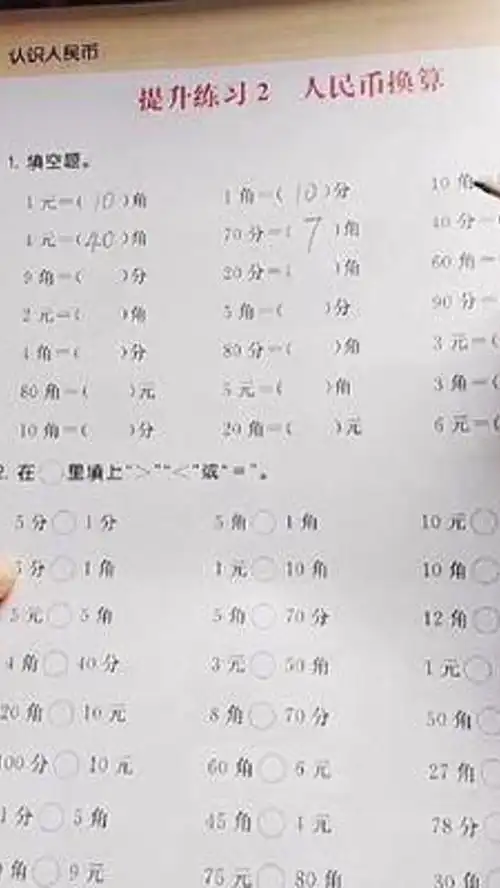 认识人民币
提升练习2 人民币换算
1. 填空题。
1元=(10)角 1角=(10)分 10角
4元=(40)角 70分=(7)角 40分=
9角=( )分 20分=( )角 60角=
2元=( )角 5角=( )分 90分=
4角=( )分 80分=( )角 3元=(
80角=( )元 5元=( )角 3角=(
10角=( )分 20角=( )元 6元=(
2. 在○里填上“>”“<”或“=”。
5分○1分 5角○1角 10元○
5分○1角 1元○10角 10角○
5元○5角 5角○70分 12角○
4角○40分 3元○50角 1元○
20角○10元 8角○70分 50角○
100分○10元 60角○6元 27角○
1分○5角 45角○4元 78分○
角○9元 75元○80角 30角○